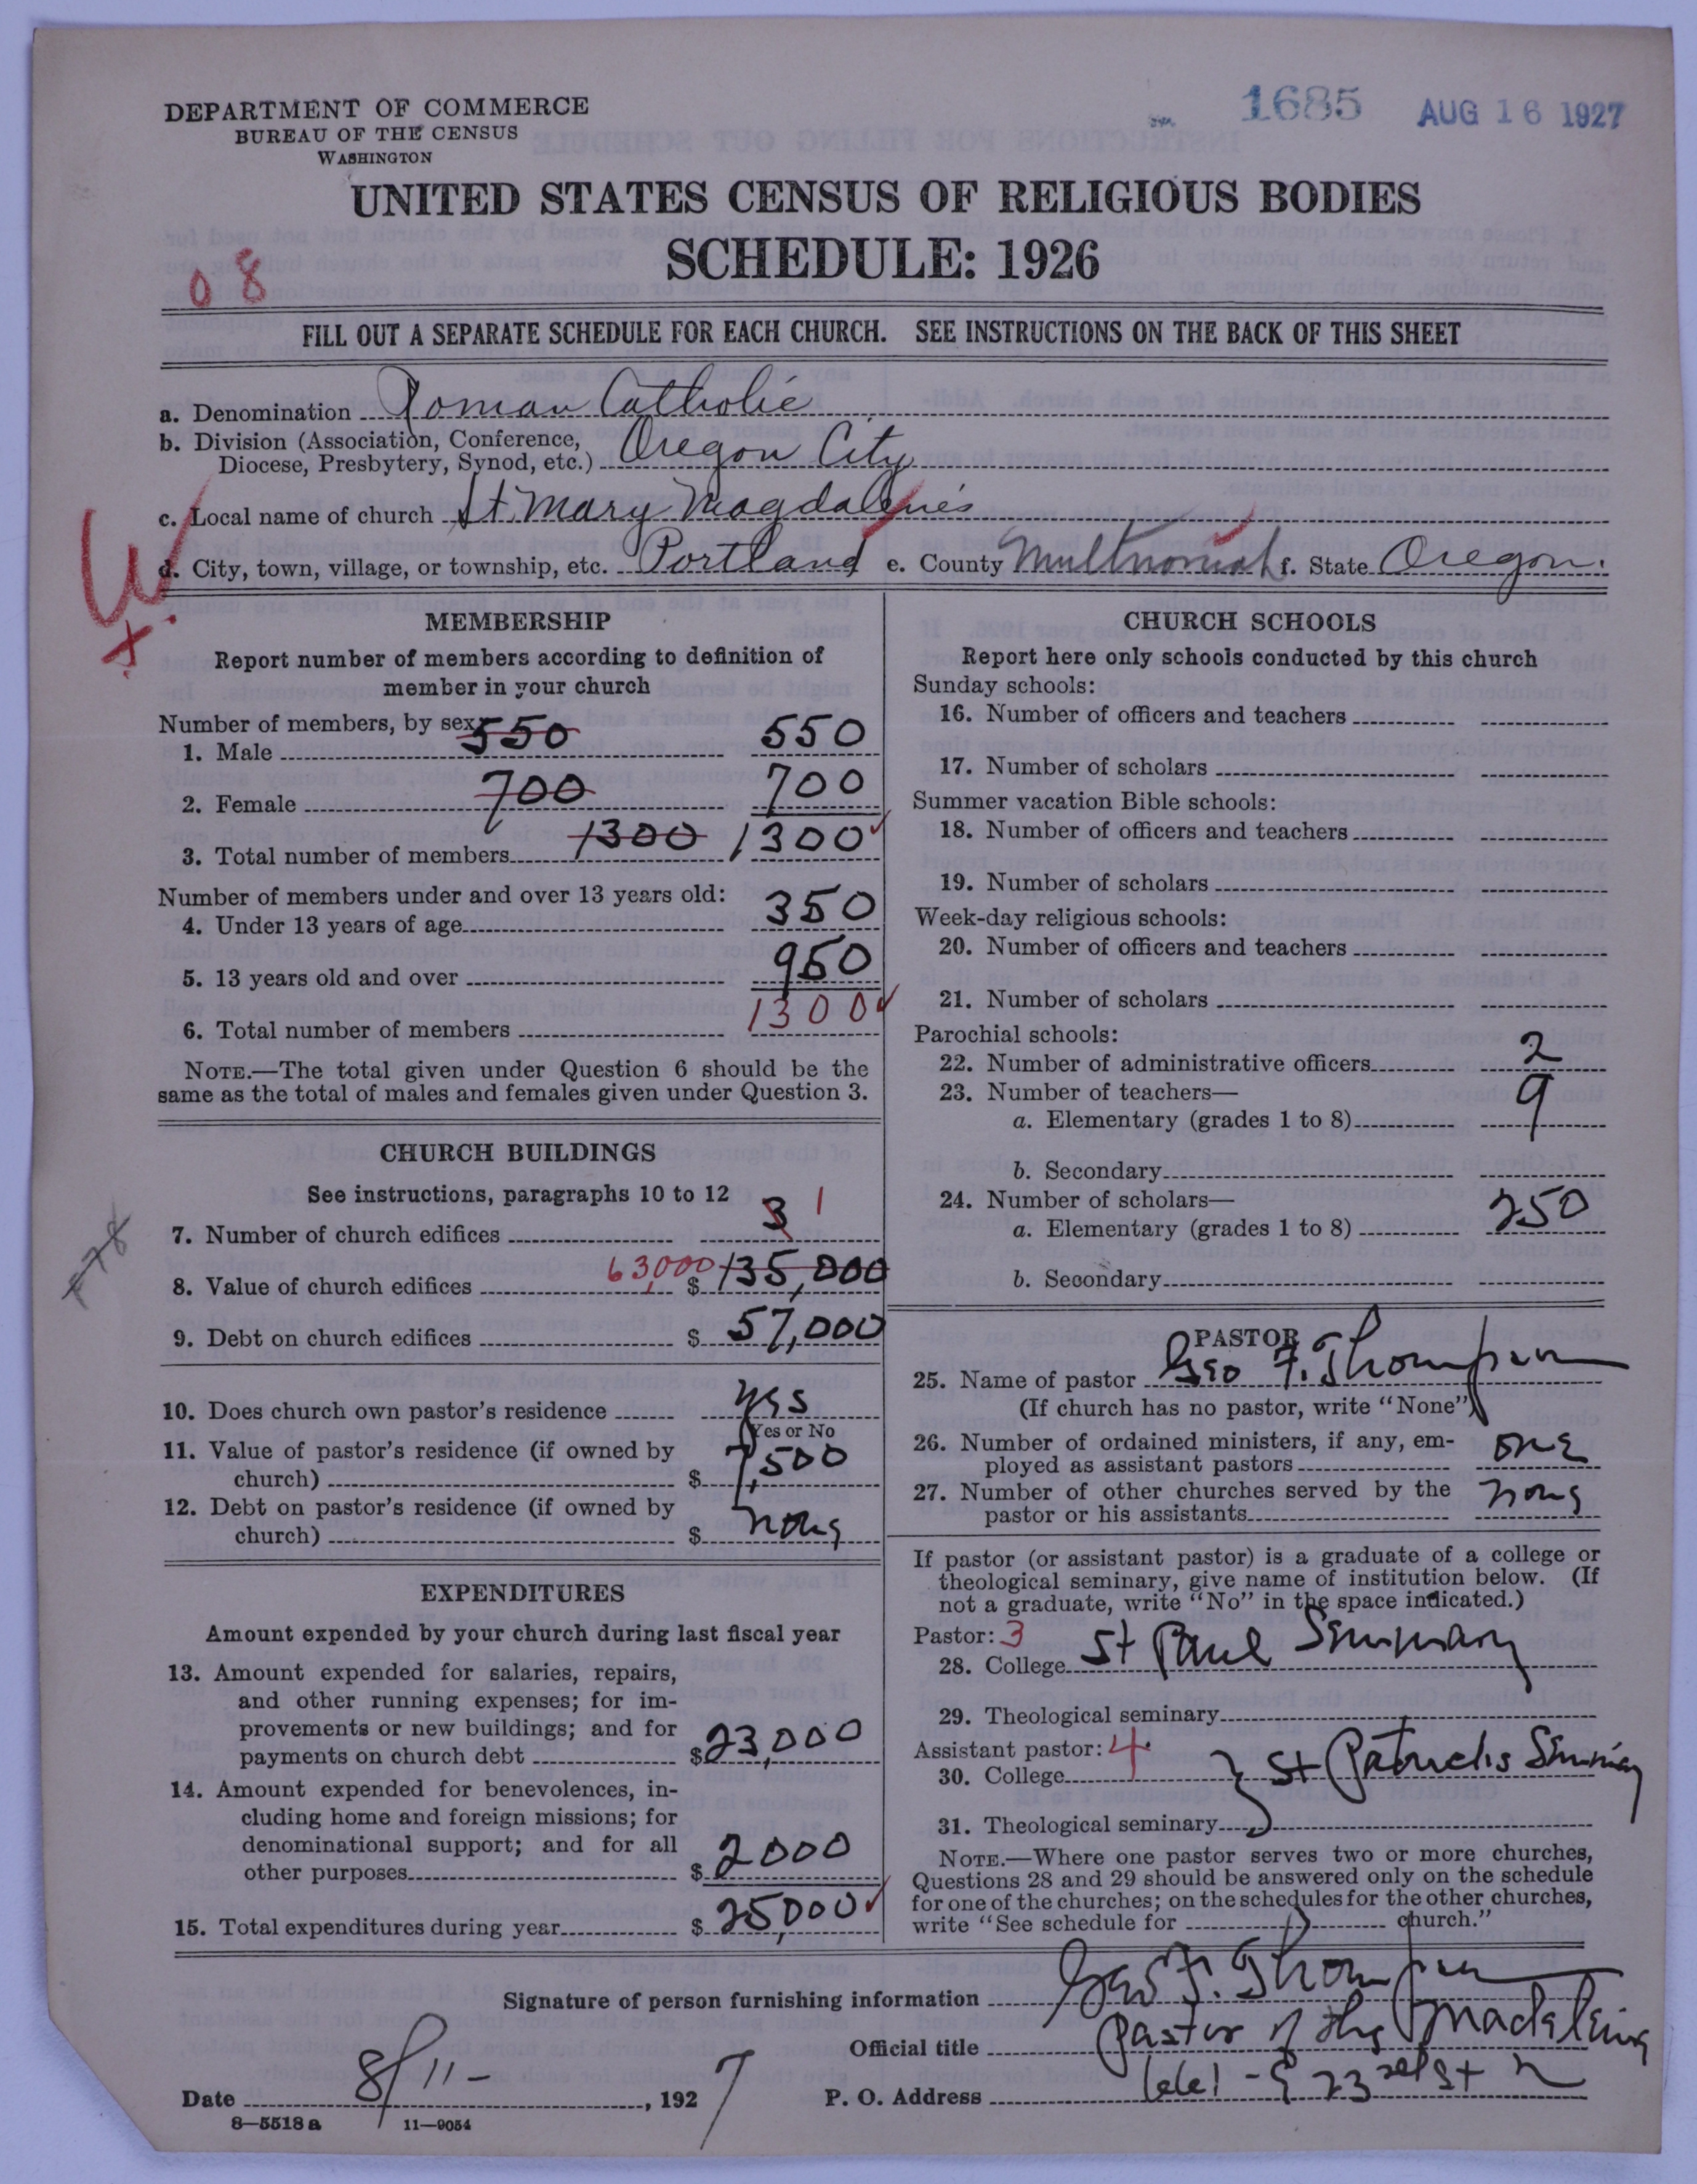 1685 AUG 16 1927
DEPARTMENT OF COMMERCE
BUREAU OF THE CENSUS
WASHINGTON
UNITED STATES CENSUS OF RELIGIOUS BODIES
SCHEDULE: 1926
08
FILL OUT A SEPARATE SCHEDULE FOR EACH CHURCH. SEE INSTRUCTIONS ON THE BACK OF THIS SHEET
a. Denomination Roman Catholic
b. Division (Association, Conference,
Diocese, Presbytery, Synod, etc.) Oregon City
c. Local name of church St. Mary Magdalene's
d. City, town, village, or township, etc. Portland e. County Multnomah f. State Oregon.
W
x
MEMBERSHIP
Report number of members according to definition of
member in your church
Number of members, by sex:
1. Male 550 550
2. Female 700 700
3. Total number of members 1300 1300
Number of members under and over 13 years old:
4. Under 13 years of age 350
5. 13 years old and over 950
6. Total number of members 1300
NOTE.—The total given under Question 6 should be the
same as the total of males and females given under Question 3.
CHURCH BUILDINGS
See instructions, paragraphs 10 to 12
7. Number of church edifices 3 1
8. Value of church edifices 63000 $ 135,000
9. Debt on church edifices $ 57,000
10. Does church own pastor's residence yes
Yes or No
11. Value of pastor's residence (if owned by
church) $ 7,500
12. Debt on pastor's residence (if owned by
church) $ none
EXPENDITURES
Amount expended by your church during last fiscal year
13. Amount expended for salaries, repairs,
and other running expenses; for im-
provements or new buildings; and for
payments on church debt $ 23,000
14. Amount expended for benevolences, in-
cluding home and foreign missions; for
denominational support; and for all
other purposes $ 2000
15. Total expenditures during year $ 25,000
CHURCH SCHOOLS
Report here only schools conducted by this church
Sunday schools:
16. Number of officers and teachers
17. Number of scholars
Summer vacation Bible schools:
18. Number of officers and teachers
19. Number of scholars
Week-day religious schools:
20. Number of officers and teachers
21. Number of scholars
Parochial schools:
22. Number of administrative officers 2
23. Number of teachers—
a. Elementary (grades 1 to 8) 9
b. Secondary
24. Number of scholars—
a. Elementary (grades 1 to 8) 250
b. Secondary
PASTOR
25. Name of pastor Geo F. Thompson
(If church has no pastor, write "None")
26. Number of ordained ministers, if any, em-
ployed as assistant pastors one
27. Number of other churches served by the
pastor or his assistants none
If pastor (or assistant pastor) is a graduate of a college or
theological seminary, give name of institution below. (If
not a graduate, write "No" in the space indicated.)
Pastor: 3
28. College St Paul Seminary
29. Theological seminary
Assistant pastor: 4
30. College } St Patricks Seminary
31. Theological seminary
NOTE.—Where one pastor serves two or more churches,
Questions 28 and 29 should be answered only on the schedule
for one of the churches; on the schedules for the other churches,
write "See schedule for church."
Signature of person furnishing information Geo F. Thompson
Official title Pastor of the Madeleine
Date 8/11- , 1927 P. O. Address 661 - E 23rd St N
8—5518 a 11—9054